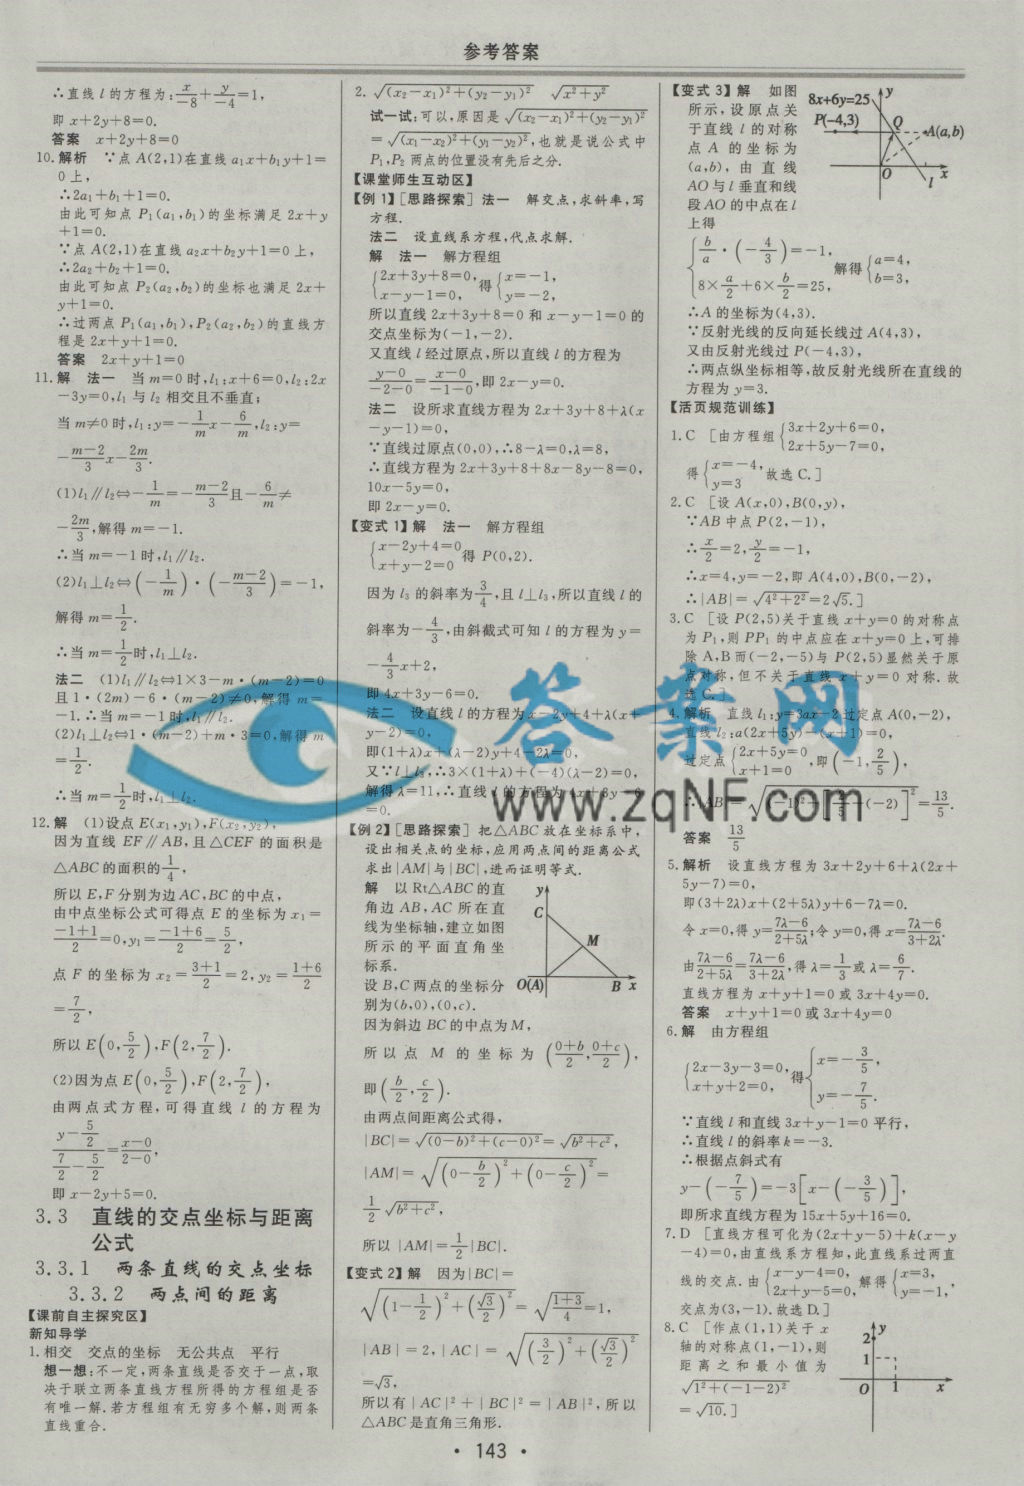 参考答案
∴直线 l 的方程为:x/-8+y/-4=1,
即 x+2y+8=0.
答案 x+2y+8=0
10.解析 ∵点 A(2,1)在直线 a₁x+b₁y+1=
0上,
∴2a₁+b₁+1=0.
由此可知点 P₁(a₁,b₁)的坐标满足 2x+y
+1=0.
∵点 A(2,1)在直线 a₂x+b₂y+1=0上,
∴2a₂+b₂+1=0.
由此可知点 P₂(a₂,b₂)的坐标也满足 2x+
y+1=0.
∴过两点 P₁(a₁,b₁),P₂(a₂,b₂)的直线方
程是 2x+y+1=0.
答案 2x+y+1=0
11.解 法一 当 m=0 时,l₁:x+6=0,l₂:2x
-3y=0,l₁ 与 l₂ 相交且不垂直;
当 m≠0 时,l₁:y=-1/m x-6/m,l₂:y=
-(m-2)/3 x-2m/3.
(1)l₁∥l₂⇔-1/m=-(m-2)/3且-6/m≠
-2m/3,解得 m=-1.
∴当 m=-1 时,l₁∥l₂.
(2)l₁⊥l₂⇔(-1/m)·(-(m-2)/3)=-1,
解得 m=1/2.
∴当 m=1/2时,l₁⊥l₂.
法二 (1)l₁∥l₂⇔1×3-m·(m-2)=0
且 1·(2m)-6·(m-2)≠0,解得 m=
-1.∴当 m=-1时,l₁∥l₂.
(2)l₁⊥l₂⇔1·(m-2)+m·3=0,解得 m
=1/2.
∴当 m=1/2时,l₁⊥l₂.
12.解 (1)设点 E(x₁,y₁),F(x₂,y₂),
因为直线 EF∥AB,且△CEF 的面积是
△ABC 的面积的1/4,
所以 E,F 分别为边 AC,BC 的中点,
由中点坐标公式可得点 E 的坐标为 x₁=
(-1+1)/2=0,y₁=(-1+6)/2=5/2,
点 F 的坐标为 x₂=(3+1)/2=2,y₂=(1+6)/2
=7/2,
所以 E(0,5/2),F(2,7/2).
(2)因为点 E(0,5/2),F(2,7/2),
由两点式方程,可得直线 l 的方程为
(y-5/2)/(7/2-5/2)=(x-0)/(2-0),
即 x-2y+5=0.
3.3 直线的交点坐标与距离
公式
3.3.1 两条直线的交点坐标
3.3.2 两点间的距离
【课前自主探究区】
新知导学
1.相交 交点的坐标 无公共点 平行
想一想:不一定,两条直线是否交于一点,取
决于联立两条直线方程所得的方程组是否
有唯一解.若方程组有无穷多个解,则两条
直线重合.
2. √((x₂-x₁)²+(y₂-y₁)²) √(x²+y²)
试一试:可以,原因是 √((x₂-x₁)²+(y₂-y₁)²)
=√((x₁-x₂)²+(y₁-y₂)²),也就是说公式中
P₁,P₂ 两点的位置没有先后之分.
【课堂师生互动区】
【例 1】[思路探索] 法一 解交点,求斜率,写
方程.
法二 设直线系方程,代点求解.
解 法一 解方程组
{2x+3y+8=0, x-y-1=0, 得{x=-1, y=-2,
所以直线 2x+3y+8=0 和 x-y-1=0 的
交点坐标为(-1,-2).
又直线 l 经过原点,所以直线 l 的方程为
(y-0)/(-2-0)=(x-0)/(-1-0),即 2x-y=0.
法二 设所求直线方程为 2x+3y+8+λ(x
-y-1)=0,
∵直线过原点(0,0),∴8-λ=0,λ=8,
∴直线方程为 2x+3y+8+8x-8y-8=0,
10x-5y=0,
即 2x-y=0.
【变式 1】解 法一 解方程组
{x-2y+4=0 x+y-2=0 得 P(0,2).
因为 l₃ 的斜率为3/4,且 l⊥l₃,所以直线 l 的
斜率为-4/3,由斜截式可知 l 的方程为 y=
-4/3x+2,
即 4x+3y-6=0.
法二 设直线 l 的方程为 x-2y+4+λ(x+
y-2)=0,
即(1+λ)x+(λ-2)y+4-2λ=0,
又∵l⊥l₃,∴3×(1+λ)+(-4)(λ-2)=0,
解得 λ=11,∴直线 l 的方程为 4x+3y-6
=0.
【例 2】[思路探索] 把△ABC 放在坐标系中,
设出相关点的坐标,应用两点间的距离公式
求出|AM|与|BC|,进而证明等式.
解 以 Rt△ABC 的直
角边 AB,AC 所在直
线为坐标轴,建立如图
所示的平面直角坐
标系.
设 B,C 两点的坐标分
别为(b,0),(0,c).
y C M O(A) B x
因为斜边 BC 的中点为 M,
所以点 M 的坐标为((0+b)/2,(0+c)/2),
即(b/2,c/2).
由两点间距离公式得,
|BC|=√((0-b)²+(c-0)²)=√(b²+c²),
|AM|=√((0-b/2)²+(0-c/2)²)=
1/2√(b²+c²),
所以|AM|=1/2|BC|.
【变式 2】解 因为|BC|=
√((1-1/2)²+(√3/2)²)=√((1+3)/4)=1,
|AB|=2,|AC|=√((3/2)²+(√3/2)²)
=√3,
所以有|AC|²+|BC|²=|AB|²,所以
△ABC 是直角三角形.
【变式 3】解 如图
所示,设原点关
于直线 l 的对称
点 A 的坐标为
(a,b),由直线
AO 与 l 垂直和线
段 AO 的中点在 l
上得
8x+6y=25 y
P(-4,3) Q A(a,b)
O x
l
{b/a·(-4/3)=-1, 8×a/2+6×b/2=25, 解得{a=4, b=3,
∴A 的坐标为(4,3).
∵反射光线的反向延长线过 A(4,3),
又由反射光线过 P(-4,3),
∴两点纵坐标相等,故反射光线所在直线的
方程为 y=3.
【活页规范训练】
1.C [由方程组{3x+2y+6=0, 2x+5y-7=0,
得{x=-4, y=3 故选 C.]
2.C [设 A(x,0),B(0,y),
∵AB 中点 P(2,-1),
∴x/2=2,y/2=-1,
∴x=4,y=-2,即 A(4,0),B(0,-2),
∴|AB|=√(4²+2²)=2√5.]
3.C [设 P(2,5)关于直线 x+y=0 的对称点
为 P₁,则 PP₁ 的中点应在 x+y=0 上,可排
除 A,B 而(-2,-5)与 P(2,5)显然关于原
点对称,但不关于直线 x+y=0 对称.故
选 C.]
4.解析 直线 l₁:y=3ax-2 过定点 A(0,-2),
直线 l₂:a(2x+5y)-(x+1)=0,
过定点{2x+5y=0 x+1=0,即(-1,2/5),
∴|AB|=√((-1)²+[2/5-(-2)]²)=13/5.
答案 13/5
5.解析 设直线方程为 3x+2y+6+λ(2x+
5y-7)=0,
即(3+2λ)x+(2+5λ)y+6-7λ=0.
令 x=0,得 y=(7λ-6)/(2+5λ);令 y=0,得 x=(7λ-6)/(3+2λ).
由(7λ-6)/(2+5λ)=(7λ-6)/(3+2λ),得 λ=1/3或 λ=6/7.
直线方程为 x+y+1=0 或 3x+4y=0.
答案 x+y+1=0 或 3x+4y=0
6.解 由方程组
{2x-3y-3=0, x+y+2=0, 得{x=-3/5, y=-7/5.
∵直线 l 和直线 3x+y-1=0 平行,
∴直线 l 的斜率 k=-3.
∴根据点斜式有
y-(-7/5)=-3[x-(-3/5)],
即所求直线方程为 15x+5y+16=0.
7.D [直线方程可化为(2x+y-5)+k(x-y
-4)=0,由直线系方程知,此直线系过两直
线的交点.由{x-y-4=0, 2x+y-5=0, 解得{x=3, y=-1,
交点为(3,-1).故选 D.]
8.C [作点(1,1)关于 x
轴的对称点(1,-1),则
距离之和最小值为
√(1²+(-1-2)²)
=√10.]
y 2 1 O 1 x
答案网
www.zqNF.com
· 143 ·